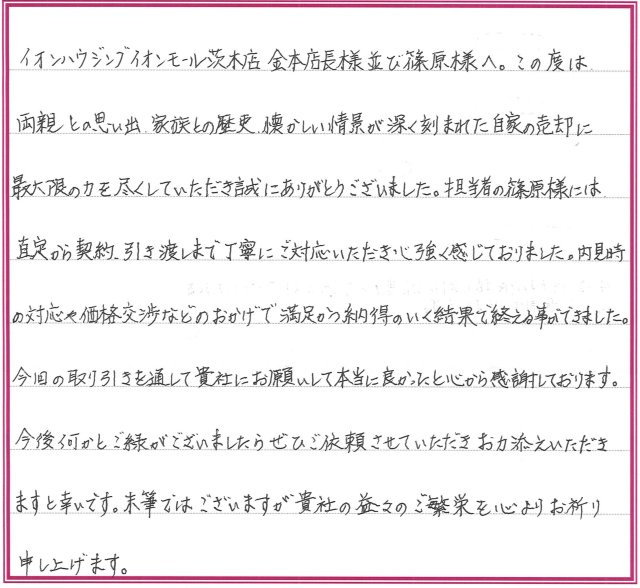 イオンハウジングイオンモール茨木店 金本店長様並び篠原様へ。この度は
両親との思い出、家族との歴史、懐かしい情景が深く刻まれた自家の売却に
最大限の力を尽くしていただき誠にありがとうございました。担当者の篠原様には
査定から契約、引き渡しまで丁寧にご対応いただき心強く感じておりました。内見時
の対応や価格交渉などのおかげで満足かつ納得のいく結果で終える事ができました。
今回の取り引きを通して貴社にお願いして本当に良かったと心から感謝しております。
今後何かとご縁がございましたらぜひご依頼させていただきお力添えいただき
ますと幸いです。末筆ではございますが貴社の益々のご繁栄を心よりお祈り
申し上げます。